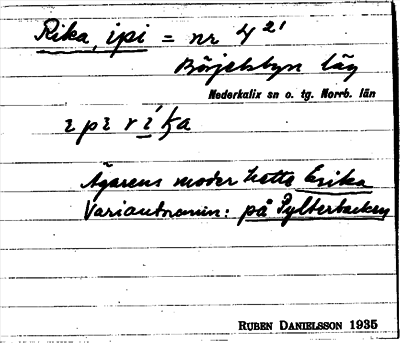 Rika, ipi = nr 4²¹
Börjelsbyn läg
Nederkalix sn o. tg. Norrb. län
ɩ pɩ ríka
Ägarens moder hette Erika
Variantnamn: på Pylterbacken
RUBEN DANIELSSON 1935